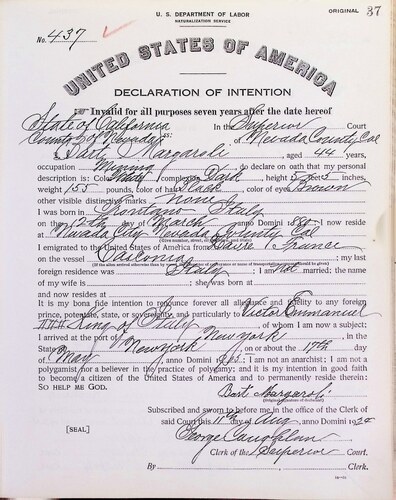 ORIGINAL 37
U. S. DEPARTMENT OF LABOR
NATURALIZATION SERVICE
No. 437
UNITED STATES OF AMERICA
DECLARATION OF INTENTION
Invalid for all purposes seven years after the date hereof
State of California In the Superior Court
County of Nevada ss: of Nevada County Cal
I, Bart Margaroli, aged 44 years,
occupation Mining, do declare on oath that my personal
description is: Color White, complexion Dark, height 5 feet 5 inches,
weight 155 pounds, color of hair Black, color of eyes Brown
other visible distinctive marks None
I was born in Italy
on the 12th day of March, anno Domini; I now reside
at Nevada City Nevada County Cal
(Give number, street, city or town, and State.)
I emigrated to the United States of America from Havre France
on the vessel; my last
foreign residence was Italy; I am not married; the name
of my wife is; she was born at
and now resides at
It is my bona fide intention to renounce forever all allegiance and fidelity to any foreign
prince, potentate, state, or sovereignty, and particularly to Victor Emmanuel
III King of Italy, of whom I am now a subject;
I arrived at the port of New york, in the
State of New york, on or about the 17th day
of May, anno Domini; I am not an anarchist; I am not a
polygamist nor a believer in the practice of polygamy; and it is my intention in good faith
to become a citizen of the United States of America and to permanently reside therein:
SO HELP ME GOD.
Bart Margaroli
(Original signature of declarant.)
Subscribed and sworn to before me in the office of the Clerk of
said Court this 11th day of Aug, anno Domini 1924
[SEAL]
George
Clerk of the Superior Court.
By, Clerk.